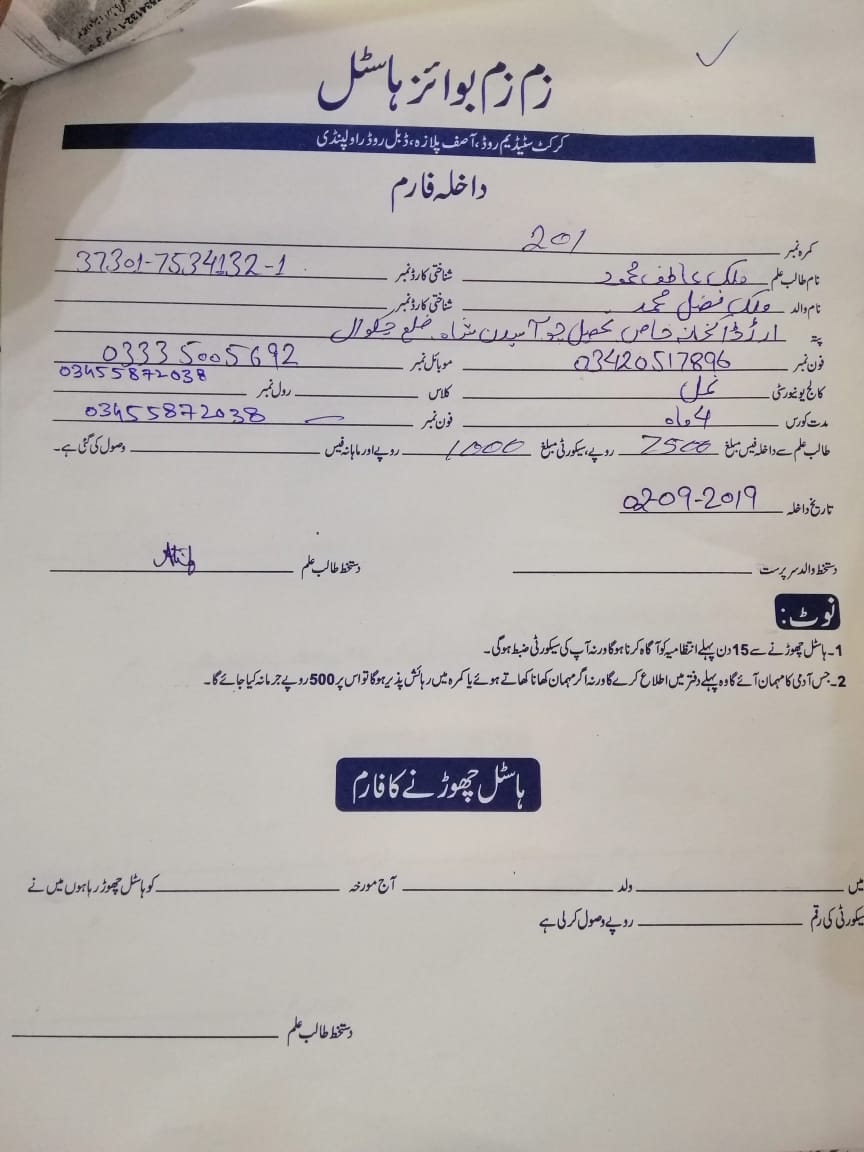 زم زم بوائز ہاسٹل
کرکٹ سٹیڈیم روڈ، آصف پلازہ، ڈبل روڈ راولپنڈی
داخلہ فارم
کمرہ نمبر 201
نام طالب علم ملک عاطف محمود شناختی کارڈ نمبر 37301-7534132-1
نام والد ملک فضل محمد شناختی کارڈ نمبر
پتہ ڈاکخانہ خاص تحصیل چوآ سیدن شاہ ضلع چکوال
فون نمبر 03420517896 موبائل نمبر 03335005692
03455872038
کالج یونیورسٹی نمل کلاس رول نمبر
مدت کورس 4 ماہ فون نمبر 03455872038
طالب علم سے داخلہ فیس مبلغ 7500 روپے، سیکورٹی مبلغ 1000 روپے اور ماہانہ فیس وصول کی گئی ہے۔
تاریخ داخلہ 02-09-2019
دستخط والد سرپرست دستخط طالب علم Atif
نوٹ:
1۔ ہاسٹل چھوڑنے سے 15 دن پہلے انتظامیہ کو آگاہ کرنا ہوگا ورنہ آپ کی سیکورٹی ضبط ہوگی۔
2۔ جس آدمی کا مہمان آئے گا وہ پہلے دفتر میں اطلاع کرے گا ورنہ اگر مہمان کھانا کھاتے ہوئے یا کمرہ میں رہائش پذیر ہوگا تو اس پر 500 روپے جرمانہ کیا جائے گا۔
ہاسٹل چھوڑنے کا فارم
میں ولد آج مورخہ کو ہاسٹل چھوڑ رہا ہوں میں نے
سیکورٹی کی رقم روپے وصول کر لی ہے
دستخط طالب علم